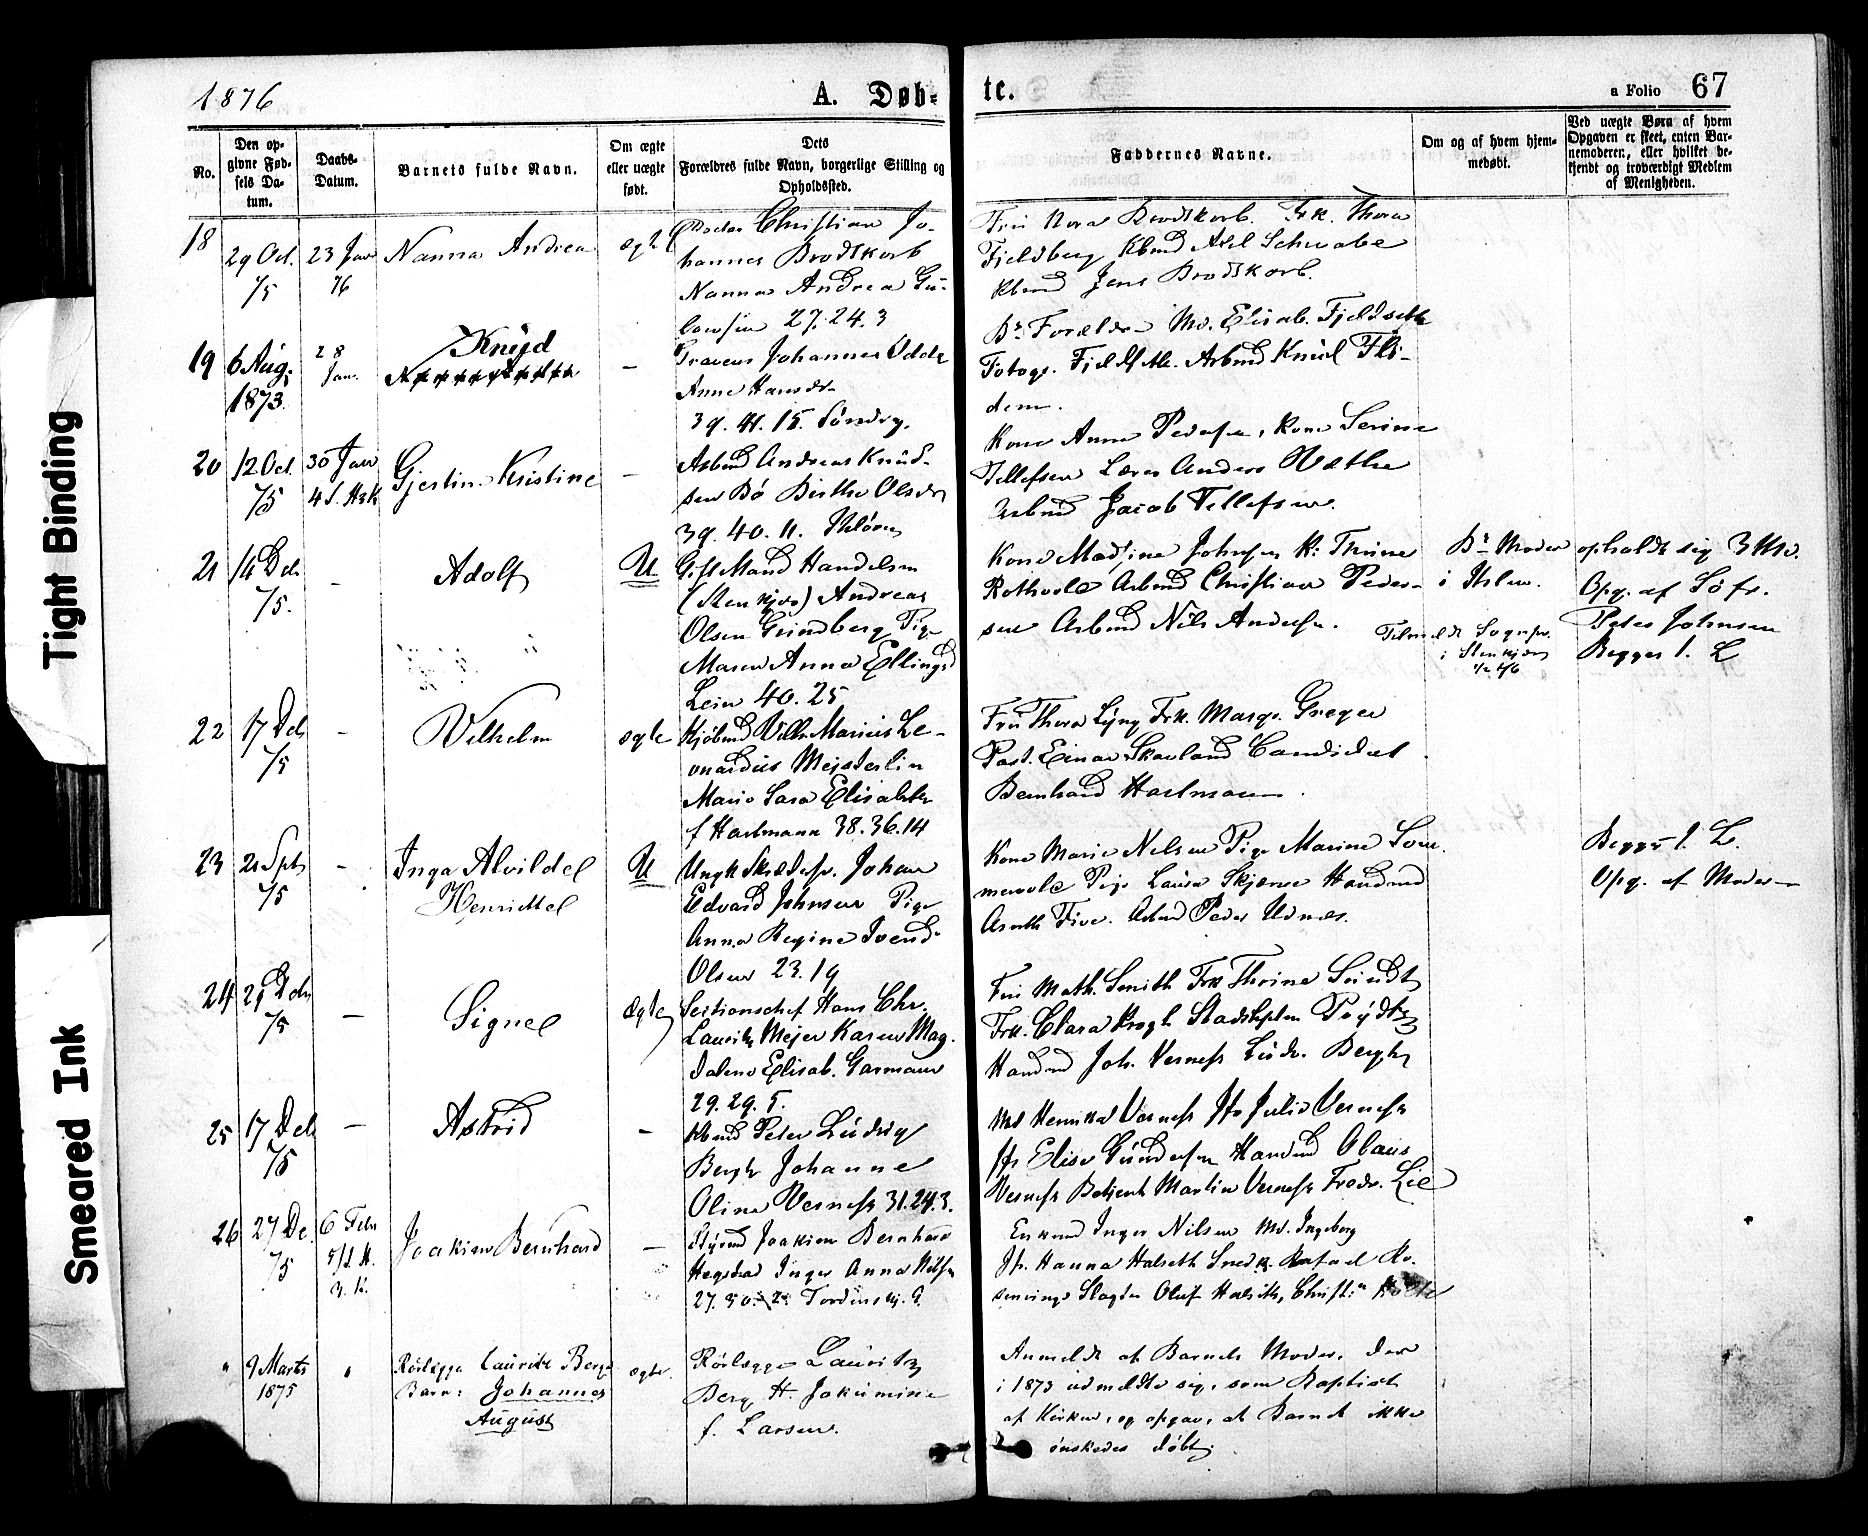 1876
A. Døb-
te.
a Folio 67
No.
Den op-
givne Fød-
sels Da-
tum.
Daabs-
Datum.
Barnets fulde Navn.
Om ægte
eller uægte
født.
Dets
Forældres fulde Navn, borgerlige Stilling og
Opholdssted.
Faddernes Navne.
Om og af hvem hjem-
medøbt.
Ved uægte Børn af hvem
Opgaven er skeet, enten Bar-
nemoderen, eller hvilket be-
kjendt og troværdigt Medlem
af Menigheden.
18
29 Oct.
75
23 Jan
76
Nanna Andrea
ægte
Christian Jo-
hannes Brodtkorb
Nanna Andrea Gu-
27. 24. 3
Fru Nora Brodtkorb. Frk. Thora
Fjeldberg Kbmd Axel Schwabe
Kbmd Jens Brodtkorb.
19
6 Aug.
1873.
28
Jan.
Knud
—
Johannes
Anne Hansdr
39. 41. 15.
Br Forældre Md. Elisab. Fjeldseth
Fotogr. Fjeldseth. Arbmd Knud
20
12 Oct.
75
30 Jan
4 S. H3K
Gjertine Kristine
—
Arbmd Andreas Knud-
sen Bø Birthe Olsdr
39. 40. 11.
Kone Anna Pedersen, Kone Serine
Tellefsen Lærer Anders
Arbmd Jacob Tellefsen.
21
14 Dec
75.
—
Adolf
U
Gift Mand Handelsm
(Stenkjær) Andreas
Olsen Grindberg Pige
Maren Anna Ellingsd
Lein 40. 25
Kone Johnsen
Arbmd Christian Peder-
sen Arbmd Nils Andersen.
Br Moder
i
Tilmeldt Sognepr.
i Stenkjær
opholdt sig 3 Uk.
Opg. af
Peter Johnsen
Begges 1. L
22
17 Dec
75
—
Vilhelm
ægte
Kjøbmd Vilh. Marius Le-
onardus Meisterlin
Marie Sara Elisabeth
f Hartmann 38. 36. 14
Fru Thora Lyng Frk. Margr. Greger
Past. Einar Skavland Candidat
Bernhard Hartmann.
23
21 Spt
75
—
Inga Alvilde
Henriette
U
Johan
Edvard Johnsen Pige
Anna Regine Iversd.
Olsen 23. 19
Kone Marie Nilsen Pige Marine Som-
Pige Laura Skjænse Handmd
Arbmd Peder Udnæs.
Begges 1. L.
Opg. af Moderen
24
29 Dcbr
75
—
Signe
Ægte
Sectionschef Hans Chr.
Lauritz Mejer Karen Mag-
dalene Elisab. Garmann
29. 29. 5.
Fru Math. Smith Frk Thrine Sundt
Frk. Clara Krogh Stadskptn
Handmd Joh. Verness Ludv. Bergh
25
17 Dcb
75
—
Astrid
—
Kbmd Peter Ludvig
Bergh Johanne
Olina Verness 31. 24. 3.
Md Henrikke Verness Jfr Julie Verness
Jfr Elise Gundersen Handmd Olaus
Verness Betjent Martin Verness Fredr. Lie
26
27 De.
75
6 Febr
5/S. H.
3. K.
Joakim Bernhard
—
Styrmd Joakim Bernhard
Hegstad Inger Anna Nilsen
27. 30. 2. Tordenskj. G.
Enkemd Inger Nilsen Md. Ingeborg
Jfr. Hanna Halseth Snedk. Rafael Ro-
senvinge Slagter Oluf Halseth, Christ.
"
9 Marts
1875
"
Rørlægger Lauritz Bergs
Barn: Johannes
August
ægte.
Rørlægger Lauritz
Berg H. Jakumine
f. Larsen.
Anmeldt af Barnets Moder, der
i 1873 udmeldte sig, som Baptist
af Kirken, og opgav, at Barnet ikke
ønskedes døbt.
Tight Binding
Smeared Ink